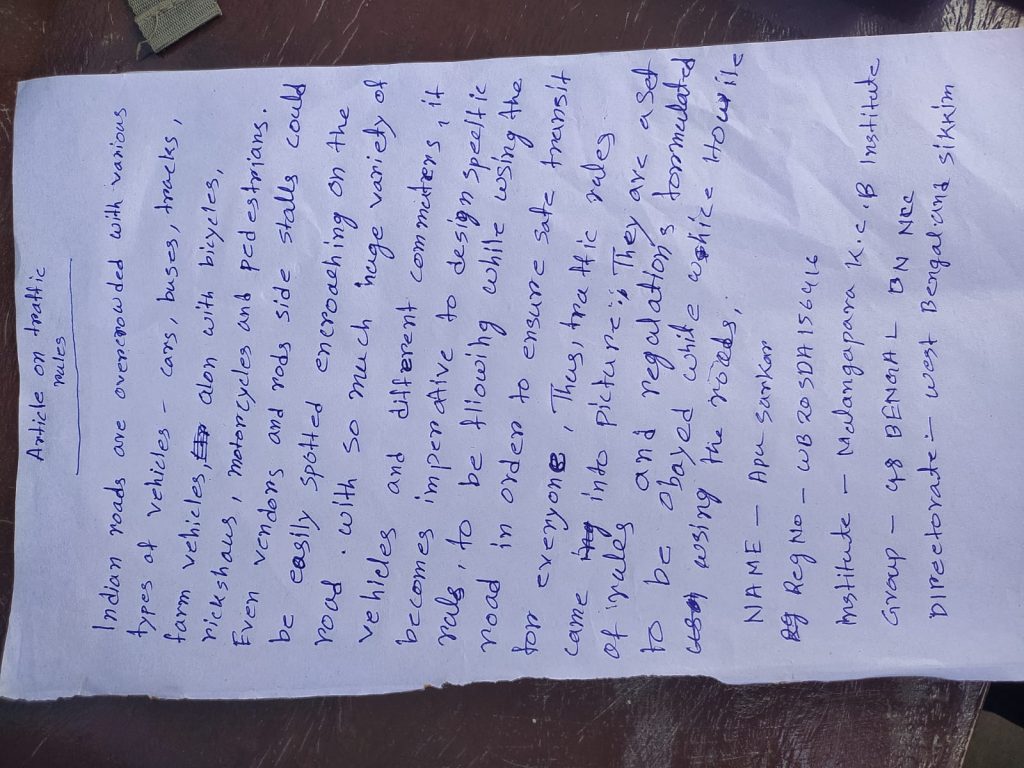 Article on traffic
rules
Indian roads are overcrowded with various
types of vehicles - cars, buses, tracks,
farm vehicles, alon with bicycles,
rickshaws, motorcycles and pedestrians.
Even vendors and rods side stalls could
be easily spotted encroaching on the
road. with so much huge variety of
vehicles and different commuters, it
becomes imperative to design speeftic
ruls, to be fllowing while using the
road in order to ensure safe transit
for everyone, Thus, traffic rules
came into picture. They are a set
of irules and regulations formulated
to be obayed while
using the roads.
NAME - Apu Sarkar
Reg No - WB20SDA156416
Institute - Malangapara K.C.B Institute
Group - 48 BENGAL BN NCC
Directorate :- West Bengal and Sikkim